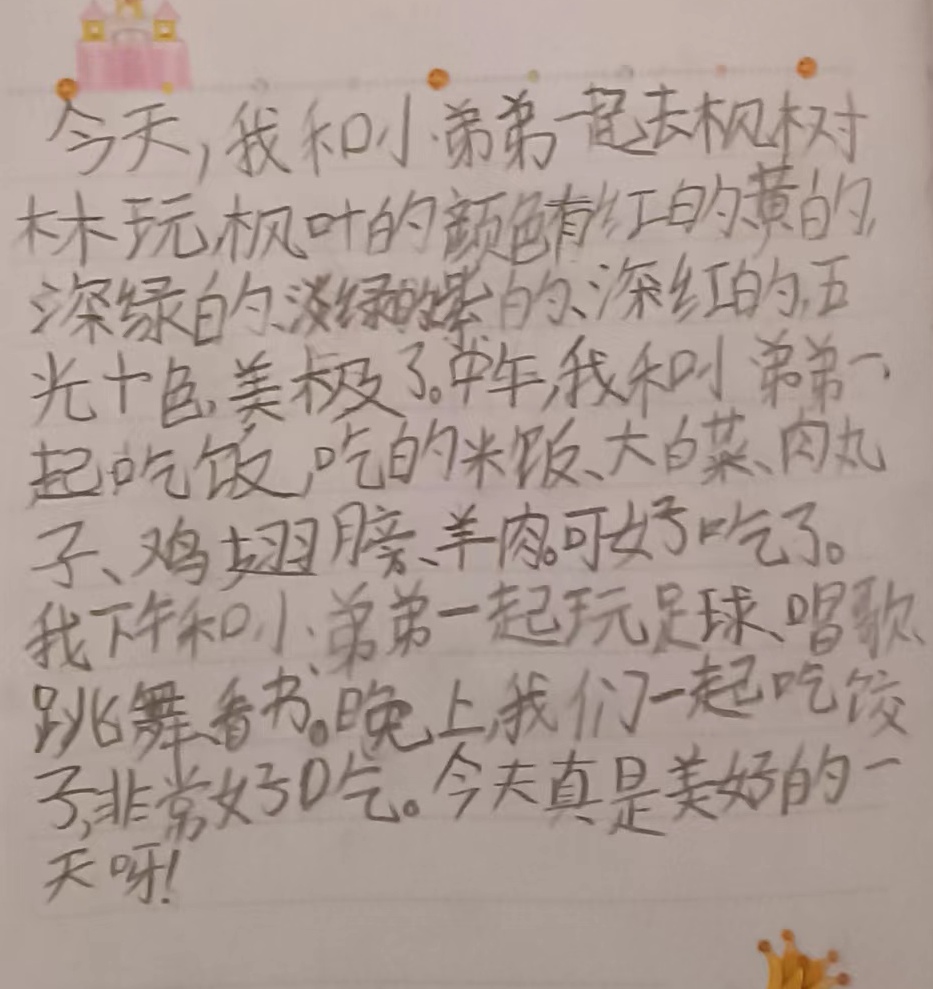 今天,我和小弟弟一起去枫树
林玩,枫叶的颜色有红的、黄的、
深绿的、淡绿的、紫的、深红的,五
光十色,美极了。中午,我和小弟弟一
起吃饭,吃的米饭、大白菜、肉丸
子、鸡翅膀、羊肉。可好吃了。
我下午和小弟弟一起玩足球、唱歌、
跳舞、看书。晚上,我们一起吃饺
子,非常好吃。今天真是美好的一
天呀!